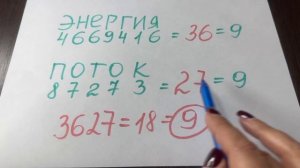 ЭНЕРГИЯ
4669416=36=9
ПОТОК
87273=27=9
3627=18=9